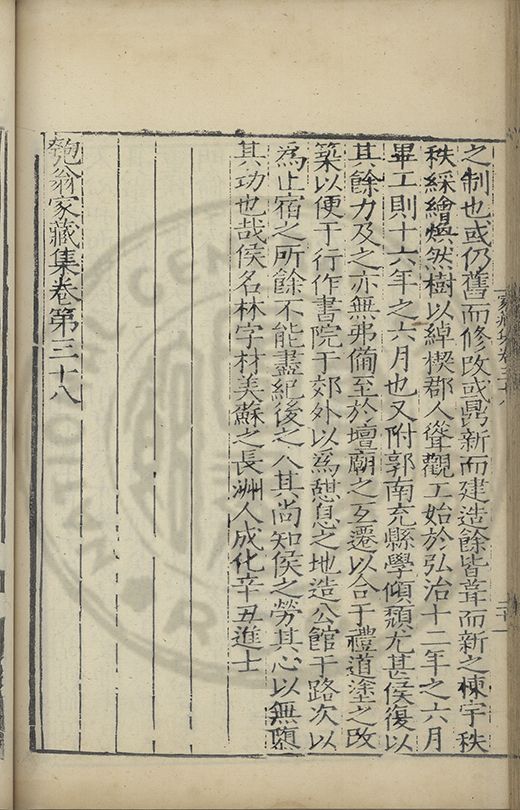 之制也或仍舊而修改或鼎新而建造餘皆葺而新之棟宇秩
秩綵繪煥然樹以綽楔郡人聳觀工始於弘治十二年之六月
畢工則十六年之六月也又附郭南充縣學傾頹尤甚侯復以
其餘力及之亦無弗備至於壇廟之互遷以合于禮道塗之改
築以便于行作書院于郊外以爲憇息之地造公館于路次以
爲止宿之所餘不能盡紀後之人其尚知侯之勞其心以無墮
其功也哉侯名林字材美蘇之長洲人成化辛丑進士
匏翁家藏集卷第三十八